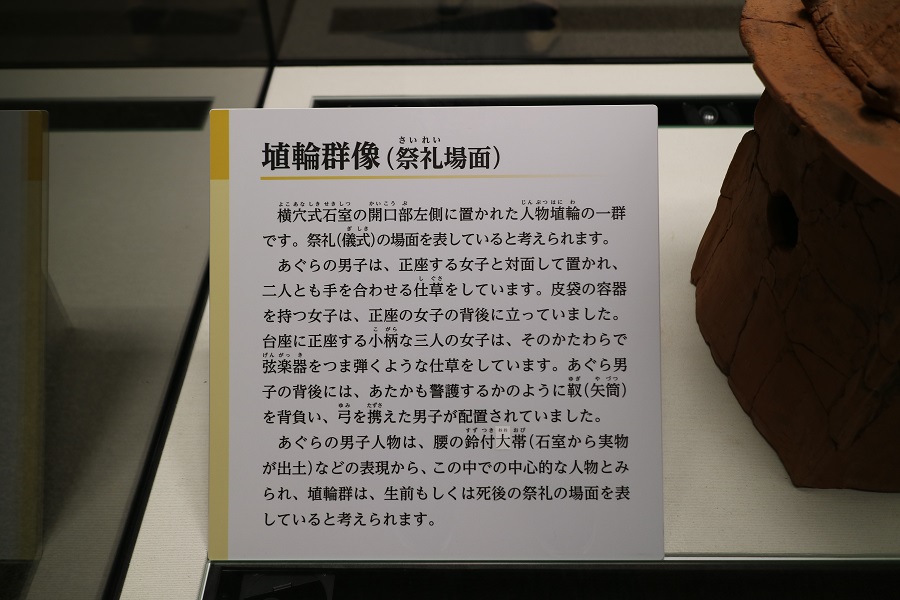 埴輪群像(祭礼場面)
横穴式石室の開口部左側に置かれた人物埴輪の一群
です。祭礼(儀式)の場面を表していると考えられます。
あぐらの男子は、正座する女子と対面して置かれ、
二人とも手を合わせる仕草をしています。皮袋の容器
を持つ女子は、正座の女子の背後に立っていました。
台座に正座する小柄な三人の女子は、そのかたわらで
弦楽器をつま弾くような仕草をしています。あぐら男
子の背後には、あたかも警護するかのように靫(矢筒)
を背負い、弓を携えた男子が配置されていました。
あぐらの男子人物は、腰の鈴付大帯(石室から実物
が出土)などの表現から、この中での中心的な人物とみ
られ、埴輪群は、生前もしくは死後の祭礼の場面を表
していると考えられます。